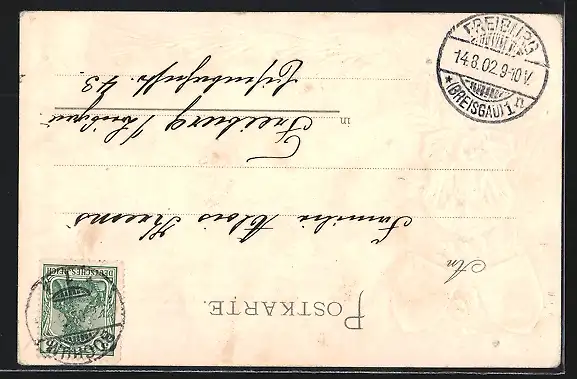 POSTKARTE.
An
Familie Alois
in Freiburg
43.
DEUTSCHES REICH
BOCHUM
FREIBURG
14.8.02.9-10V.
*(BREISGAU)1.